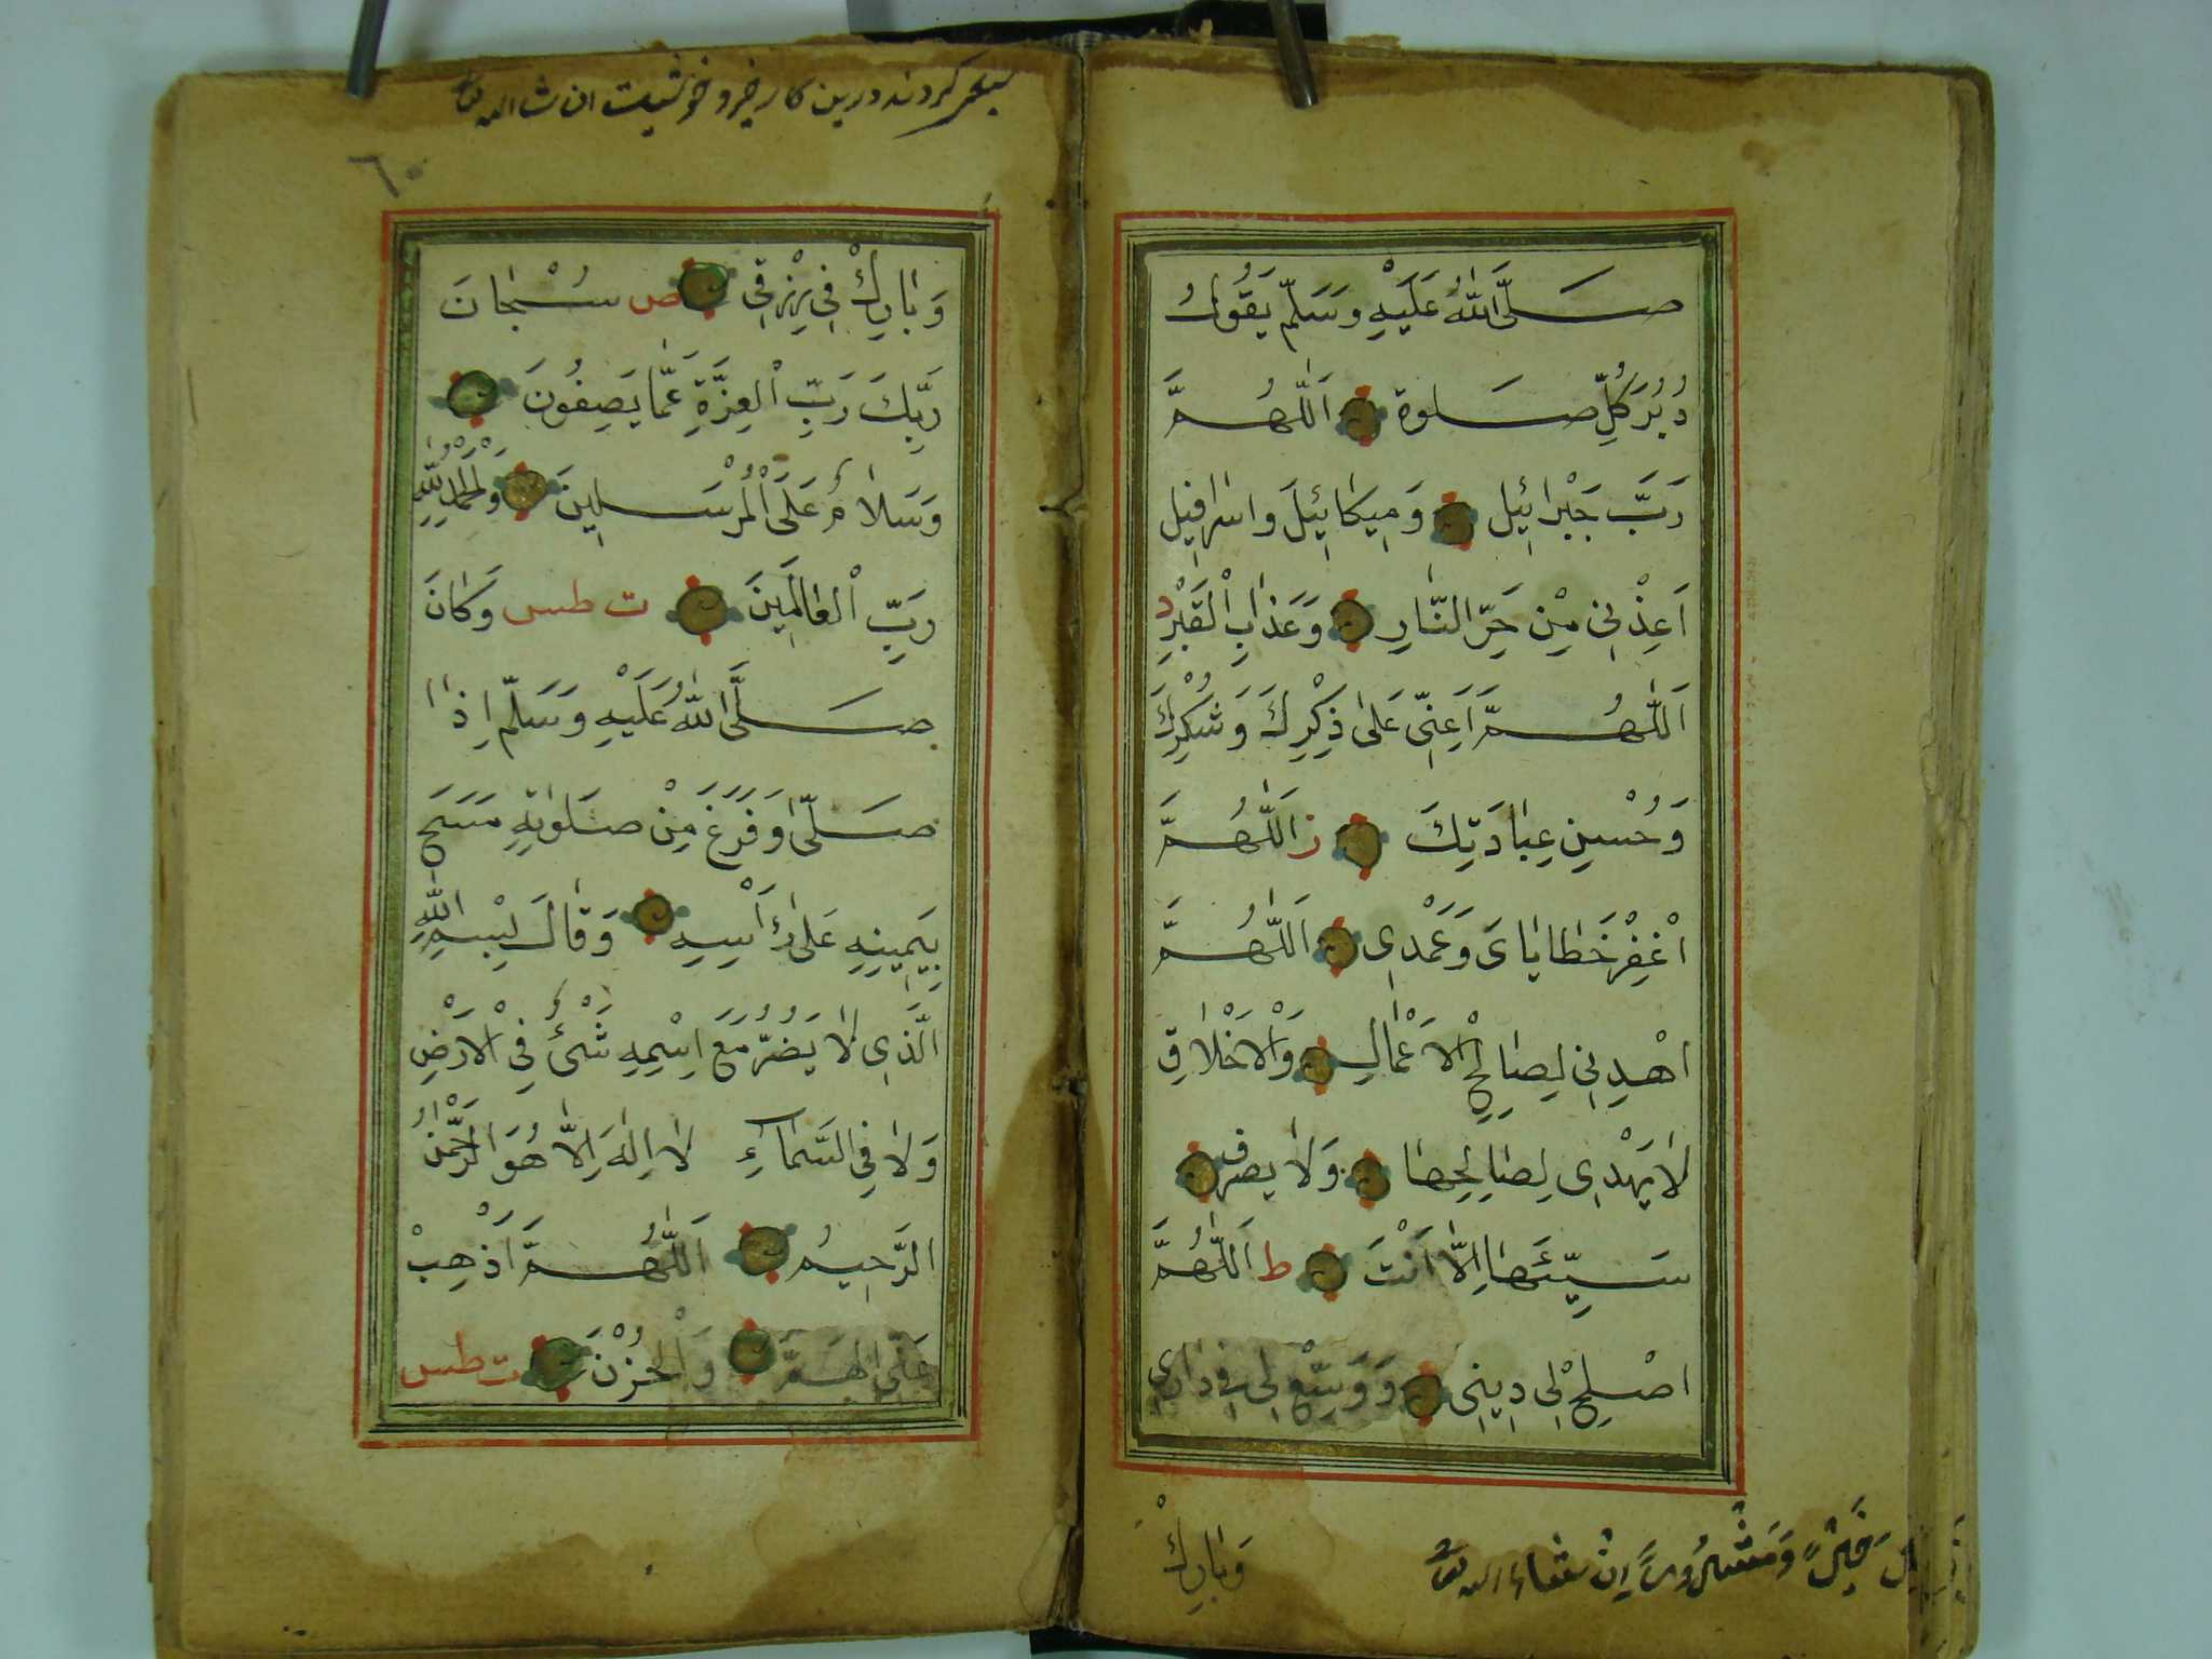 صَلَّى اللّٰهُ عَلَيْهِ وَسَلَّمَ يَقُولُ
دُبُرَ كُلِّ صَلٰوة اَللّٰهُمَّ
رَبَّ جَبْرَائِيل وَمِيكَائِيلَ وَاسْرَافِيل
اَعِذْنِي مِنْ حَرِّ النَّارِ وَعَذَابِ الْقَبْرِ د
اَللّٰهُمَّ اَعِنِّي عَلٰى ذِكْرِكَ وَشُكْرِكَ
وَحُسْنِ عِبَادَتِكَ ز اَللّٰهُمَّ
اغْفِرْ خَطَايَاىَ وَعَمْدِى اَللّٰهُمَّ
اهْدِنِي لِصَالِحِ الْاَعْمَالِ وَالْاَخْلَاقِ
لَا يَهْدِى لِصَالِحِهَا وَلَا يصرف
سَيِّئَهَا اِلَّا اَنْتَ ط اَللّٰهُمَّ
اصْلِحْ لِى دِينِى وَوَسِّعْ لِى فِى دَارِى
وَبَارِكْ
اِنْ شَاءَ الله
ان شاالله
كردند درين كار خير و خوشيست
٦٠
وَبَارِكْ فِى رِزْقِى ص سُبْحَانَ
رَبِّكَ رَبِّ الْعِزَّةِ عَمَّا يَصِفُونَ
وَسَلَامٌ عَلَى الْمُرْسَلِينَ وَالْحَمْدُ لِلّٰهِ
رَبِّ الْعَالَمِينَ ت طس وَكَانَ
صَلَّى اللّٰهُ عَلَيْهِ وَسَلَّمَ اِذَا
صَلَّى وَفَرَغَ مِنْ صَلٰوتِهِ مَسَحَ
بِيَمِينِهِ عَلٰى رَأْسِهِ وَقَالَ بِسْمِ اللّٰهِ
الَّذِى لَا يَضُرُّ مَعَ اِسْمِهِ شَىْءٌ فِى الْاَرْضِ
وَلَا فِى السَّمَاءِ لَا اِلٰهَ اِلَّا هُوَ الرَّحْمٰنُ
الرَّحِيمُ اَللّٰهُمَّ اَذْهِبْ
عَنِّى الْهَمَّ وَالْحُزْنَ ت طس